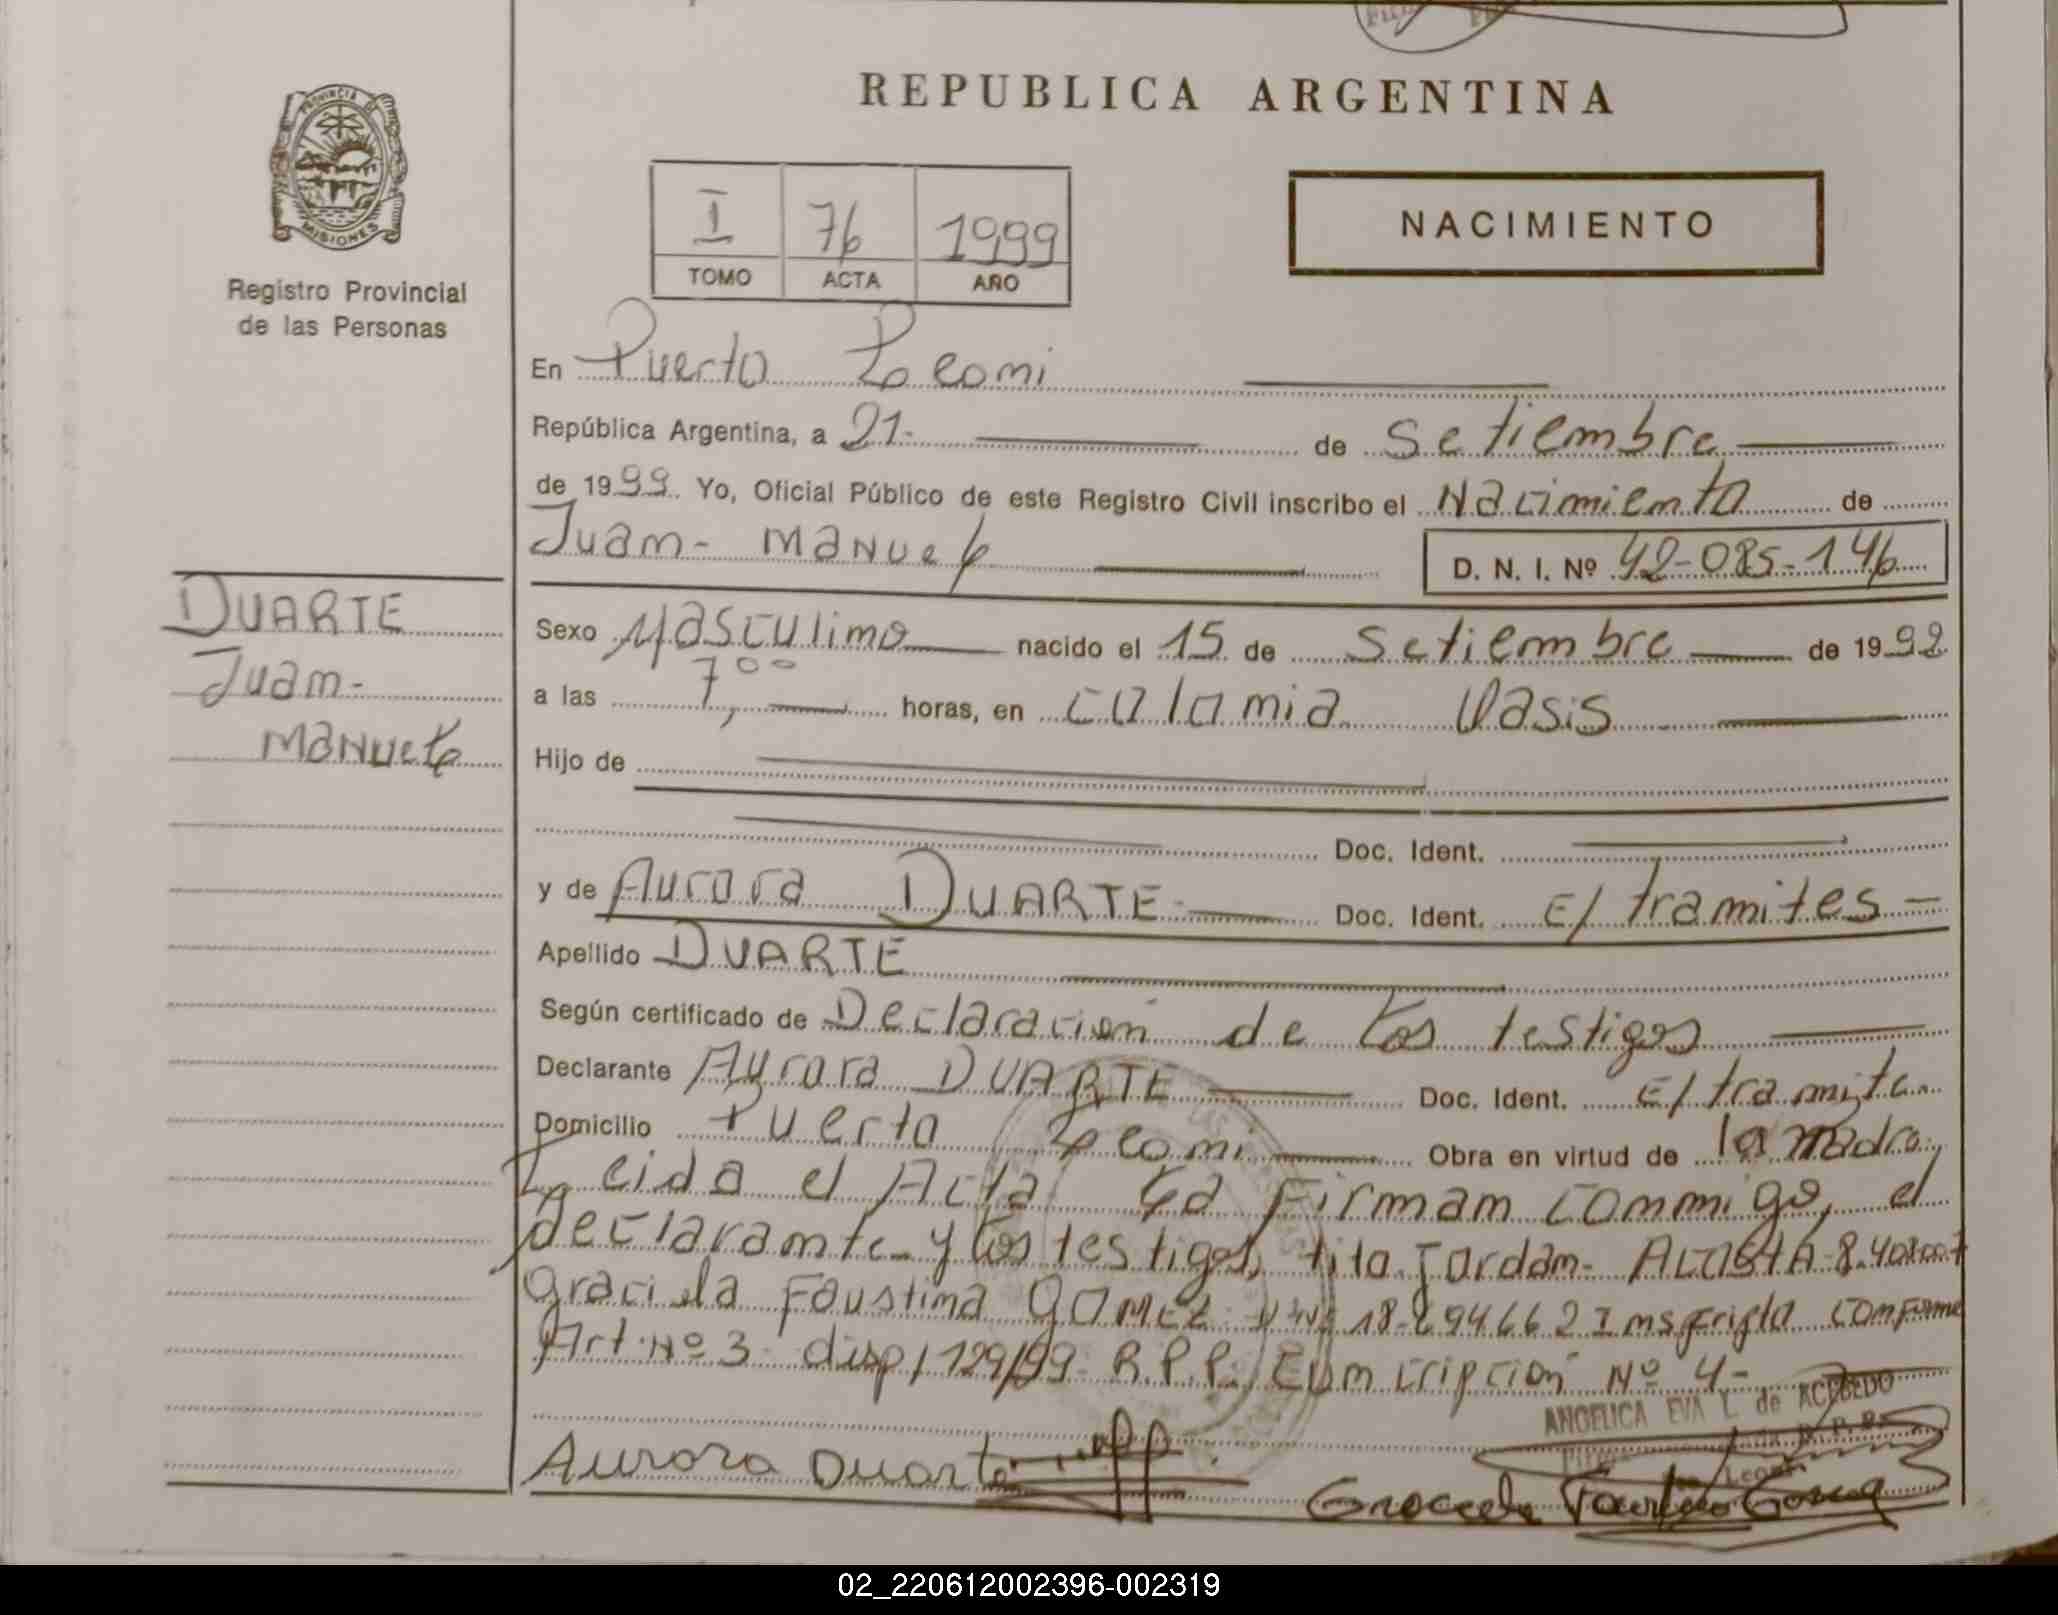 REPUBLICA ARGENTINA
PROVINCIA DE
MISIONES
Registro Provincial
de las Personas
NACIMIENTO
I 76 1999
TOMO ACTA AÑO
En Puerto Leoni
República Argentina, a 21- de Setiembre
de 1999. Yo, Oficial Público de este Registro Civil inscribo el Nacimiento de
Juan- Manuel
D. N. I. Nº 42-085-146
DUARTE
Juan-
Manuel
Sexo Masculino nacido el 15 de Setiembre de 1992
a las 7,00 horas, en Colonia Oasis
Hijo de
Doc. Ident.
y de Aurora DUARTE- Doc. Ident. E/ tramites-
Apellido DUARTE
Según certificado de Declaración de los testigos
Declarante Aurora DUARTE Doc. Ident. E/ tramite
Domicilio Puerto Leoni Obra en virtud de la madre
Leida el Acta la Firman conmigo, el
declarante y los testigos, tito Jordan- ACOSTA-8.408.007
Graciela Faustina GOMEZ DNI 18- Inscripta conforme
Art. Nº 3 disp/ 129/99- R.P.P. Circunscripción Nº 4-
ANGELICA EVA L. de ACEBEDO
Aurora Duarte
Graciela Faustina Gomez
02_220612002396-002319